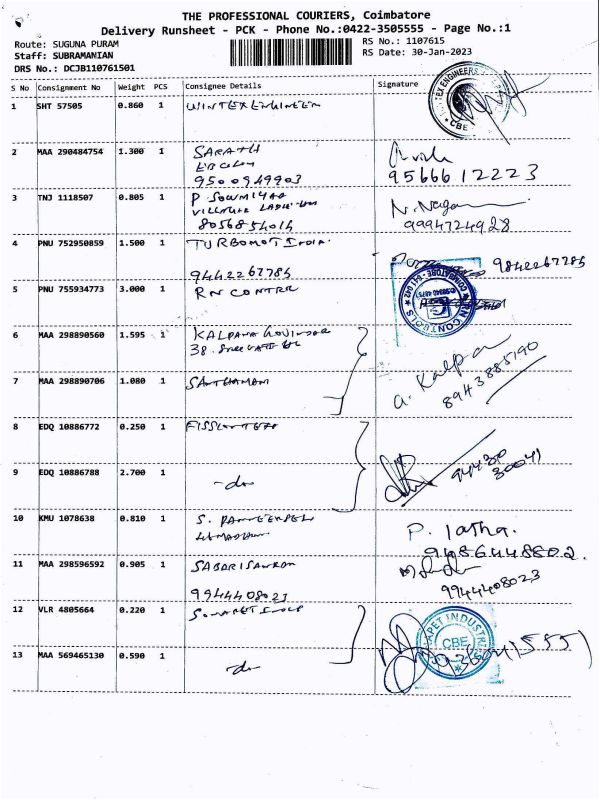 THE PROFESSIONAL COURIERS, Coimbatore
Delivery Runsheet - PCK - Phone No.:0422-3505555 - Page No.:1
Route: SUGUNA PURAM
RS No.: 1107615
Staff: SUBRAMANIAN
RS Date: 30-Jan-2023
DRS No.: DCJB110761501
S No Consignment No Weight PCS Consignee Details Signature
1 SHT 57505 0.860 1 WINTEX ENGINEER
TEX ENGINEERS
CBE
2 MAA 290484754 1.300 1 SARATH
9500949903
9566612223
3 TNJ 1118507 0.805 1 P. SOWMIYAA
VILLTHUR
8056854014
N. Nagam
9994724928
4 PNU 752950859 1.500 1 TURBOMOT INDIA
9442267785
9842267785
5 PNU 755934773 3.000 1 RN CONTRL
RN CONTROLS
6 MAA 298890560 1.595 1 KALPANA GOVINDAR
38.
7 MAA 298890706 1.080 1 SANTHAMANI
a. Kalpa
8943885190
8 EDQ 10886772 0.250 1
9 EDQ 10886788 2.700 1 -do-
94430
30041
10 KMU 1078638 0.810 1 S. PANNEERSEL
P. latha.
9486448802.
11 MAA 298596592 0.905 1 SABARISANKAR
9944408023
9944408023
12 VLR 4805664 0.220 1
INDUSTRIES
CBE
13 MAA 569465130 0.590 1 -do-